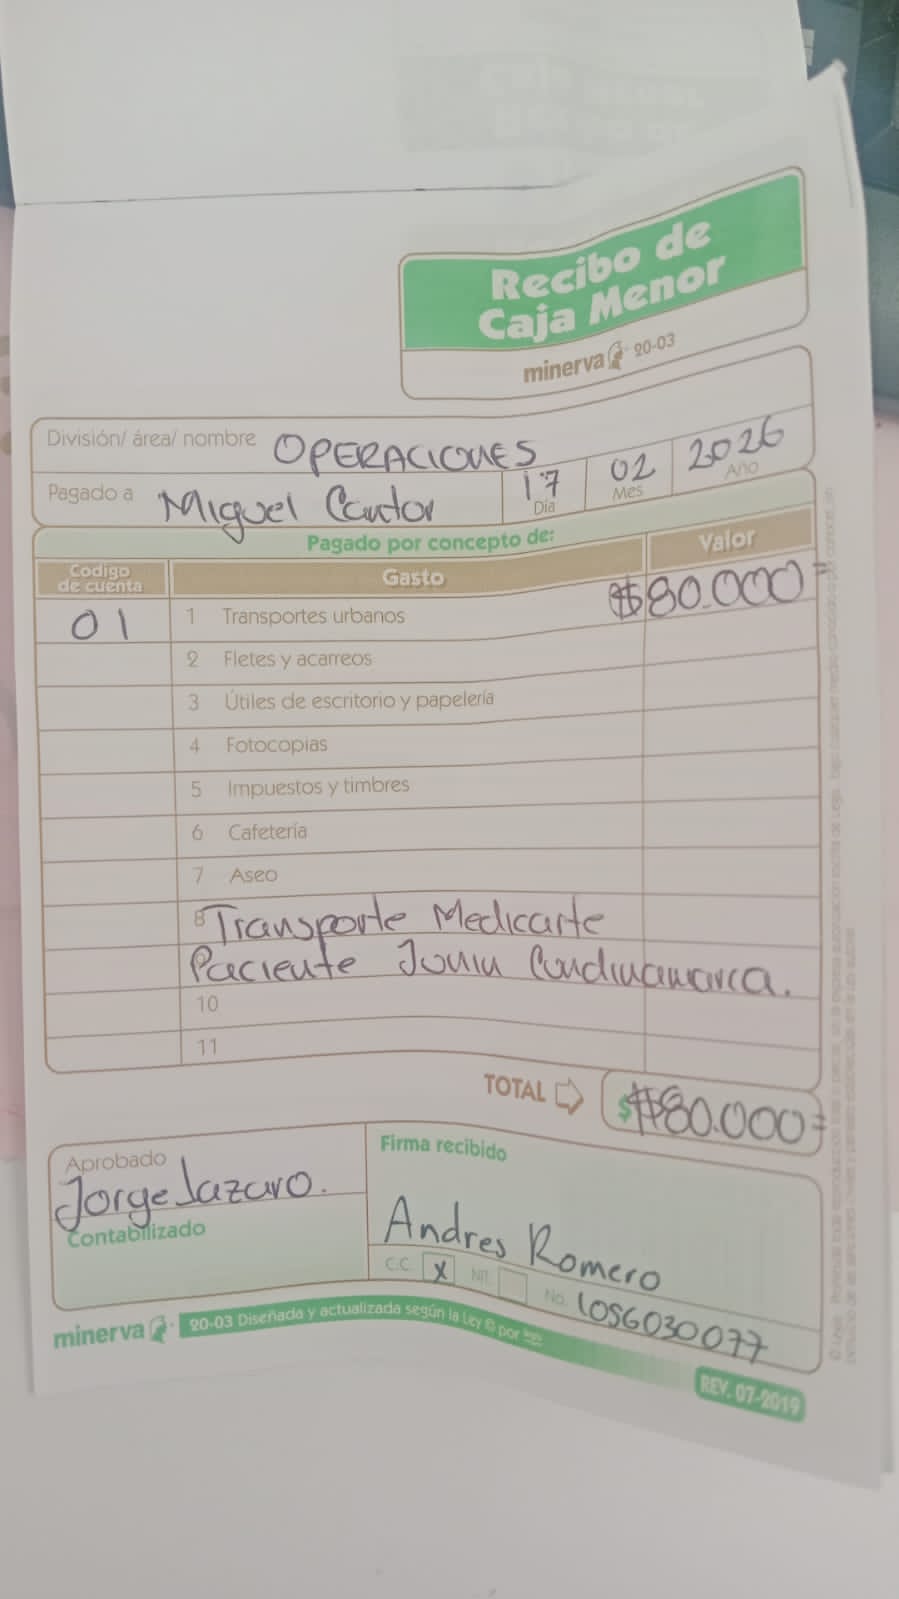 Recibo de
Caja Menor
minerva 20-03
División/ área/ nombre OPERACIONES
Pagado a Miguel Cantor 17 02 2026
Día Mes Año
Pagado por concepto de:
Codigo de cuenta Gasto Valor
01 1 Transportes urbanos $80.000=
2 Fletes y acarreos
3 Útiles de escritorio y papelería
4 Fotocopias
5 Impuestos y timbres
6 Cafetería
7 Aseo
8 Transporte Medicarte
Paciente Junin Cundinamarca.
10
11
TOTAL $ $80.000=
Aprobado
Jorge Lazaro.
Contabilizado
Firma recibido
Andres Romero
C.C. X NIT. No. 1056030077
minerva 20-03 Diseñada y actualizada según la Ley © por legis
REV. 07-2019